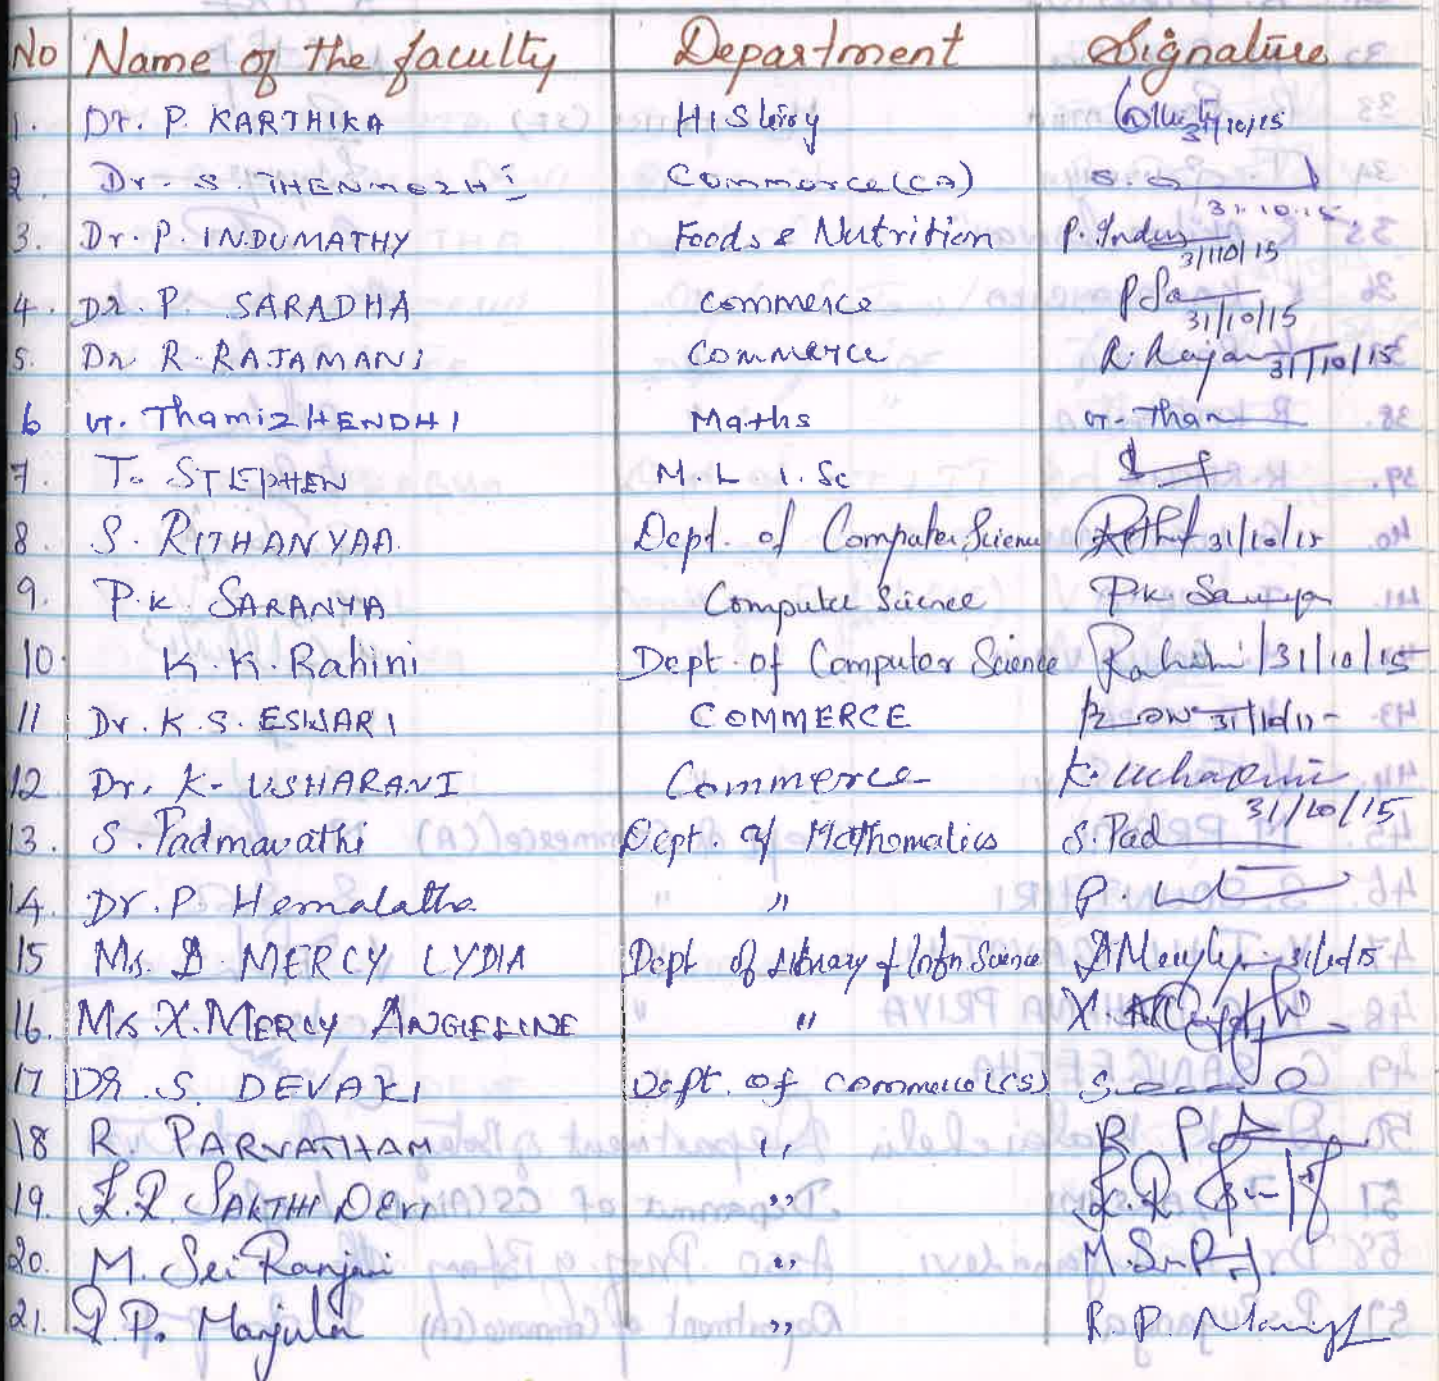 No Name of the faculty Department Signature
1. Dr. P. KARTHIKA History 31/10/15
2. Dr. S. THENMOZHI Commerce (CA) S. 31.10.15
3. Dr. P. INDUMATHY Foods & Nutrition P. Indu 31/10/15
4. Dr. P. SARADHA Commerce P Sa 31/10/15
5. Dr R. RAJAMANI Commerce R. Raja 31/10/15
6 G. ThamizHENDHI Maths G. Tham
7. T. STEPHEN M.L.I.Sc
8. S. RITHANYAA. Dept. of Computer Science 31/10/15
9. P.K. SARANYA Computer Science P.K. Saranya
10. K.K. Rahini Dept. of Computer Science Rahini 31/10/15
11 Dr. K.S. ESWARI COMMERCE 31/10/15
12 Dr. K. USHARANI Commerce K. Usharani 31/10/15
13. S. Padmavathi Dept. of Mathematics S. Pad
14. Dr. P. Hemalatha " P.
15 Ms. D. MERCY LYDIA Dept of Library & Infn Science 31/10/15
16. Ms. X. MERCY ANGELINE " X.
17 Dr. S. DEVAKI Dept. of Commerce (CS) S
18 R. PARVATHAM " R. P
19. S.R. SAKTHI DEVI "
20. M. Sri Ranjini " M. Sri
21. R.P. Manjula " R. P. Manj